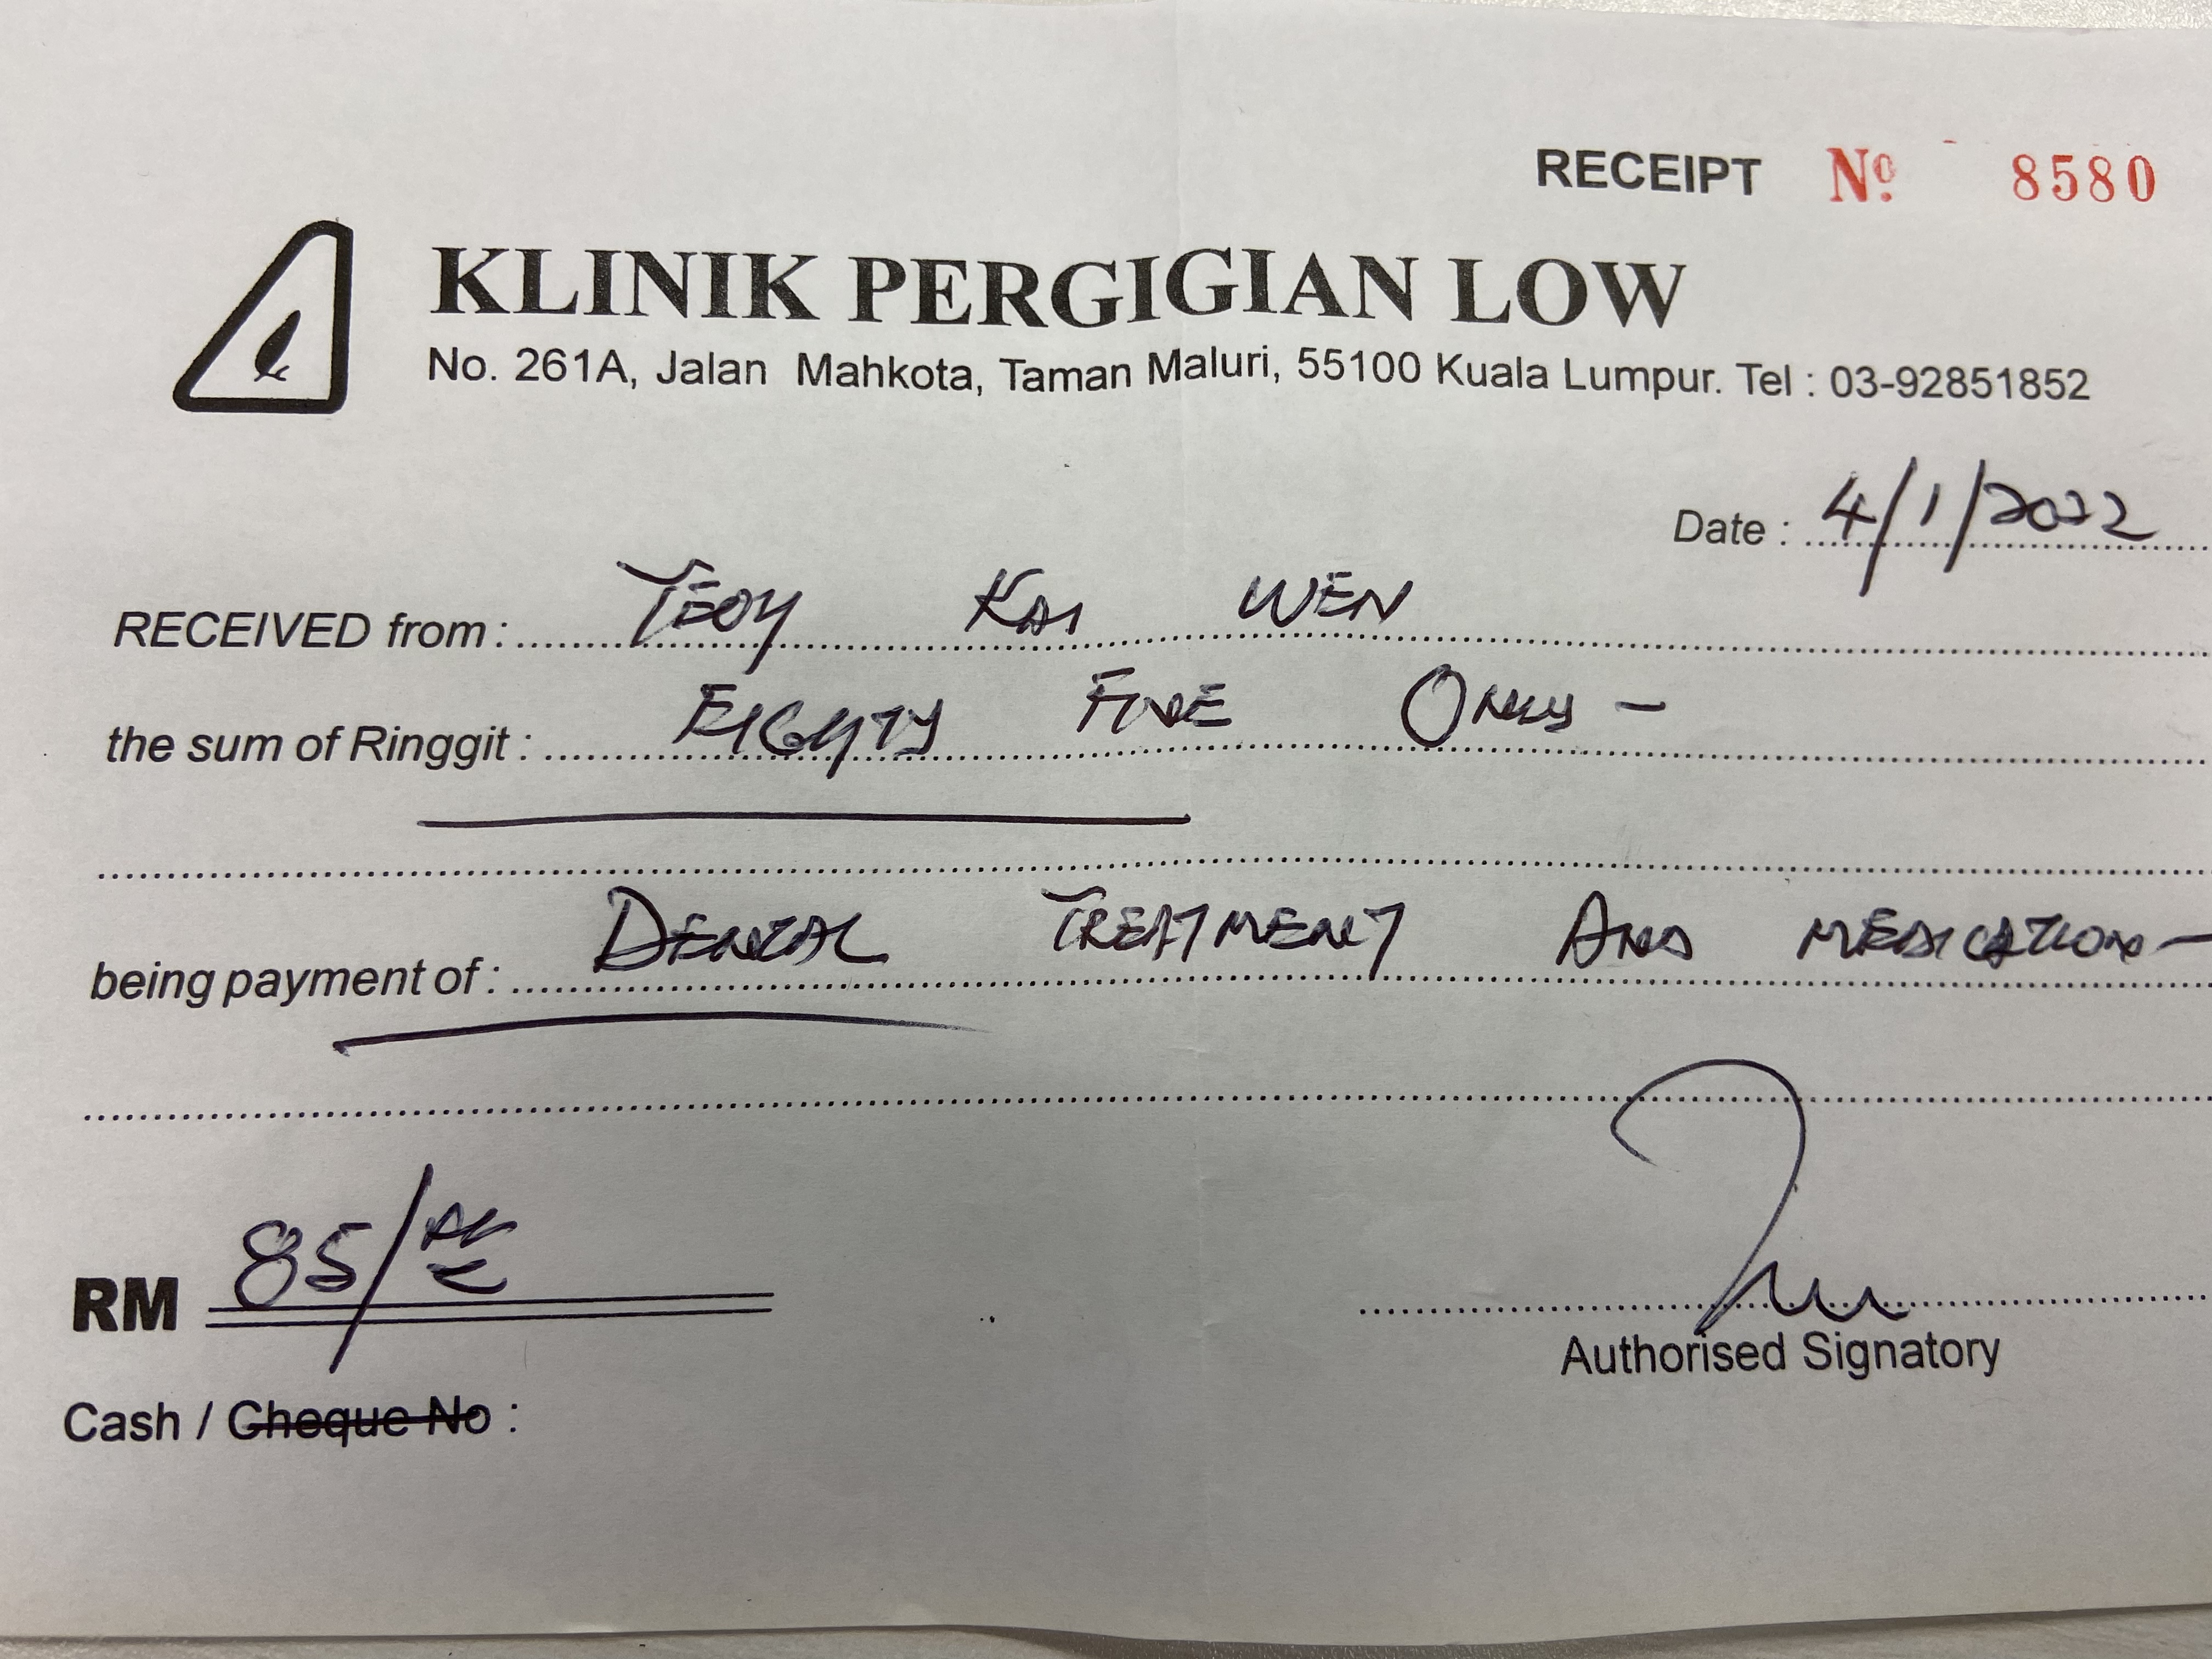 RECEIPT Nº 8580
KLINIK PERGIGIAN LOW
No. 261A, Jalan Mahkota, Taman Maluri, 55100 Kuala Lumpur. Tel : 03-92851852
Date : 4/1/2022
RECEIVED from : TEOY KAI WEN
the sum of Ringgit : EIGHTY FIVE ONLY -
being payment of : DENTAL TREATMENT AND MEDICATIONS -
RM 85/
Cash / Cheque No :
Authorised Signatory